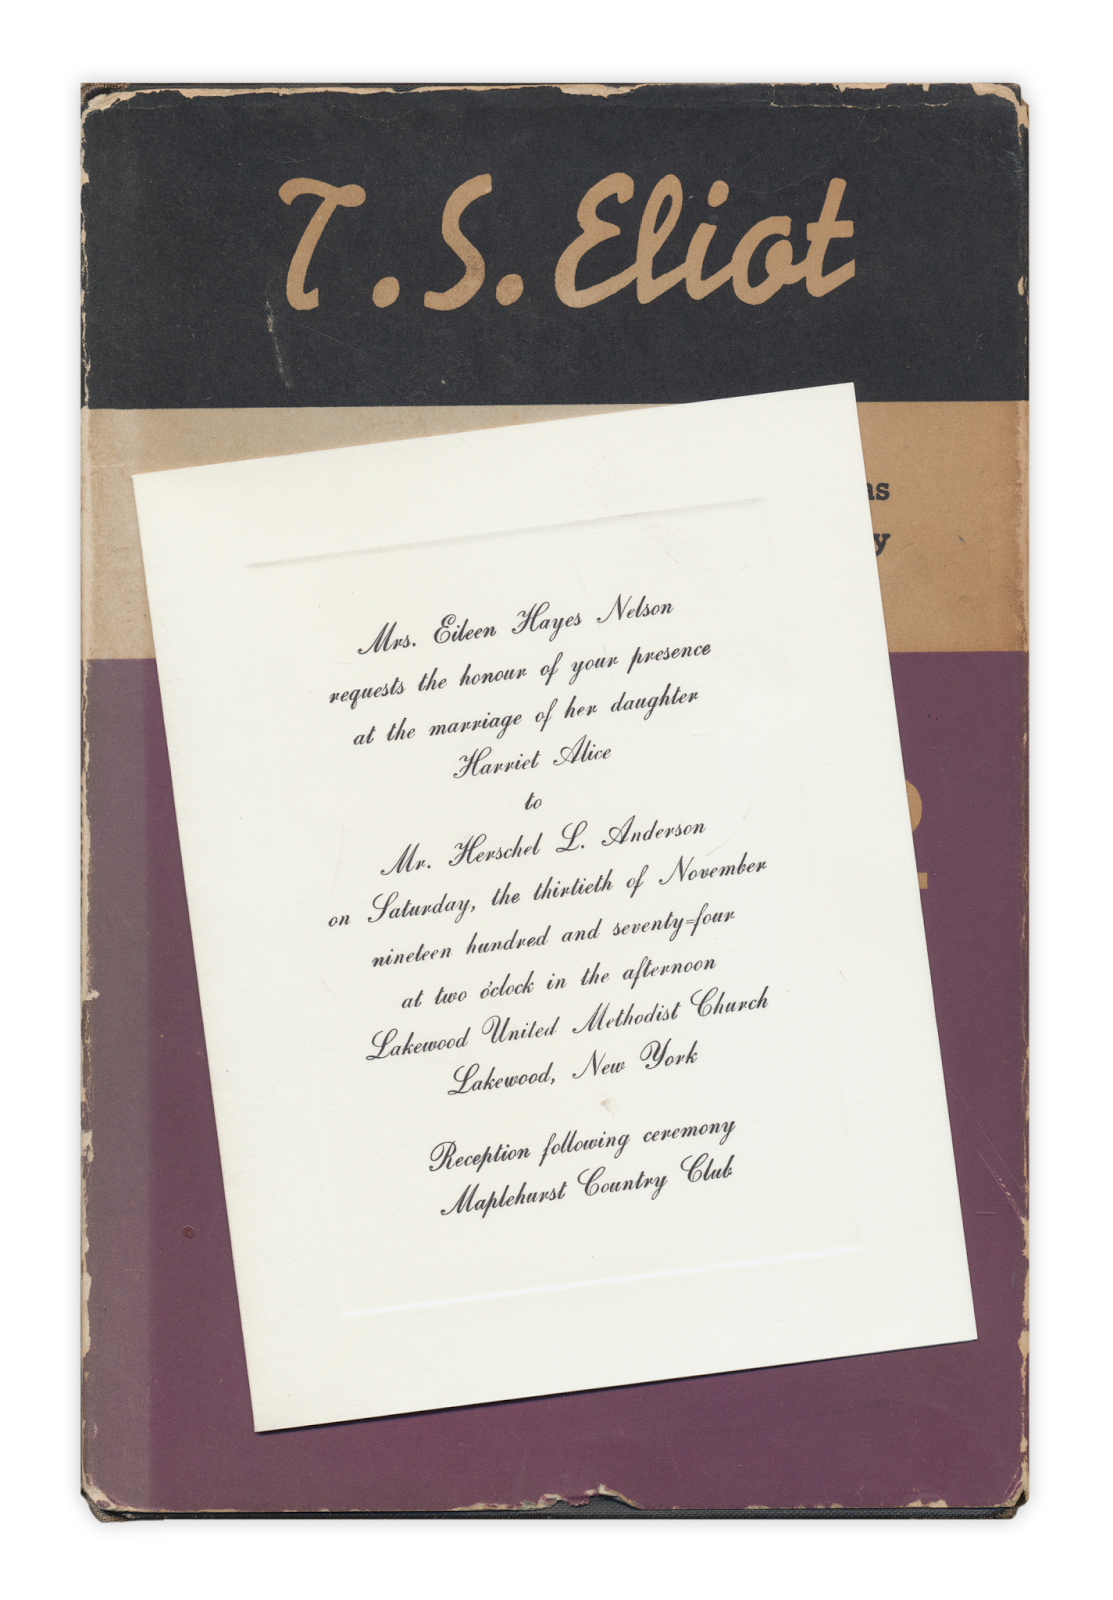 T. S. Eliot
Mrs. Eileen Hayes Nelson
requests the honour of your presence
at the marriage of her daughter
Harriet Alice
to
Mr. Herschel L. Anderson
on Saturday, the thirtieth of November
nineteen hundred and seventy=four
at two o'clock in the afternoon
Lakewood United Methodist Church
Lakewood, New York
Reception following ceremony
Maplehurst Country Club